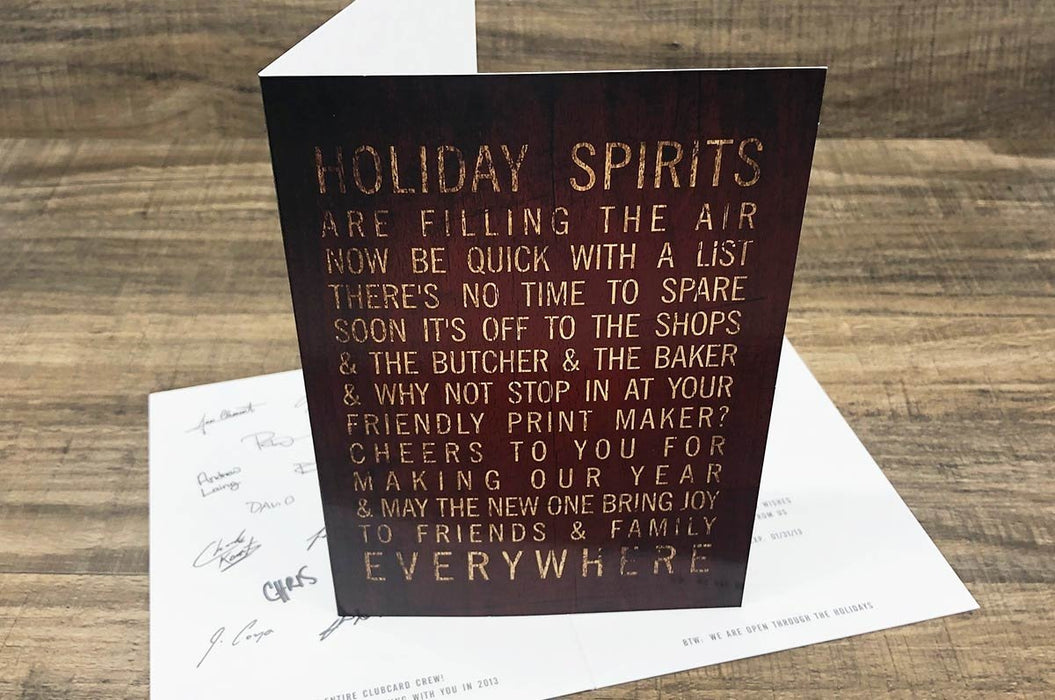 HOLIDAY SPIRITS
ARE FILLING THE AIR
NOW BE QUICK WITH A LIST
THERE'S NO TIME TO SPARE
SOON IT'S OFF TO THE SHOPS
& THE BUTCHER & THE BAKER
& WHY NOT STOP IN AT YOUR
FRIENDLY PRINT MAKER?
CHEERS TO YOU FOR
MAKING OUR YEAR
& MAY THE NEW ONE BRING JOY
TO FRIENDS & FAMILY
EVERYWHERE
Andrew
Laing
DAVID
CHRIS
J. Coyo
WISHES
FROM US
01/31/13
BTW: WE ARE OPEN THROUGH THE HOLIDAYS
ENTIRE CLUBCARD CREW!
WITH YOU IN 2013